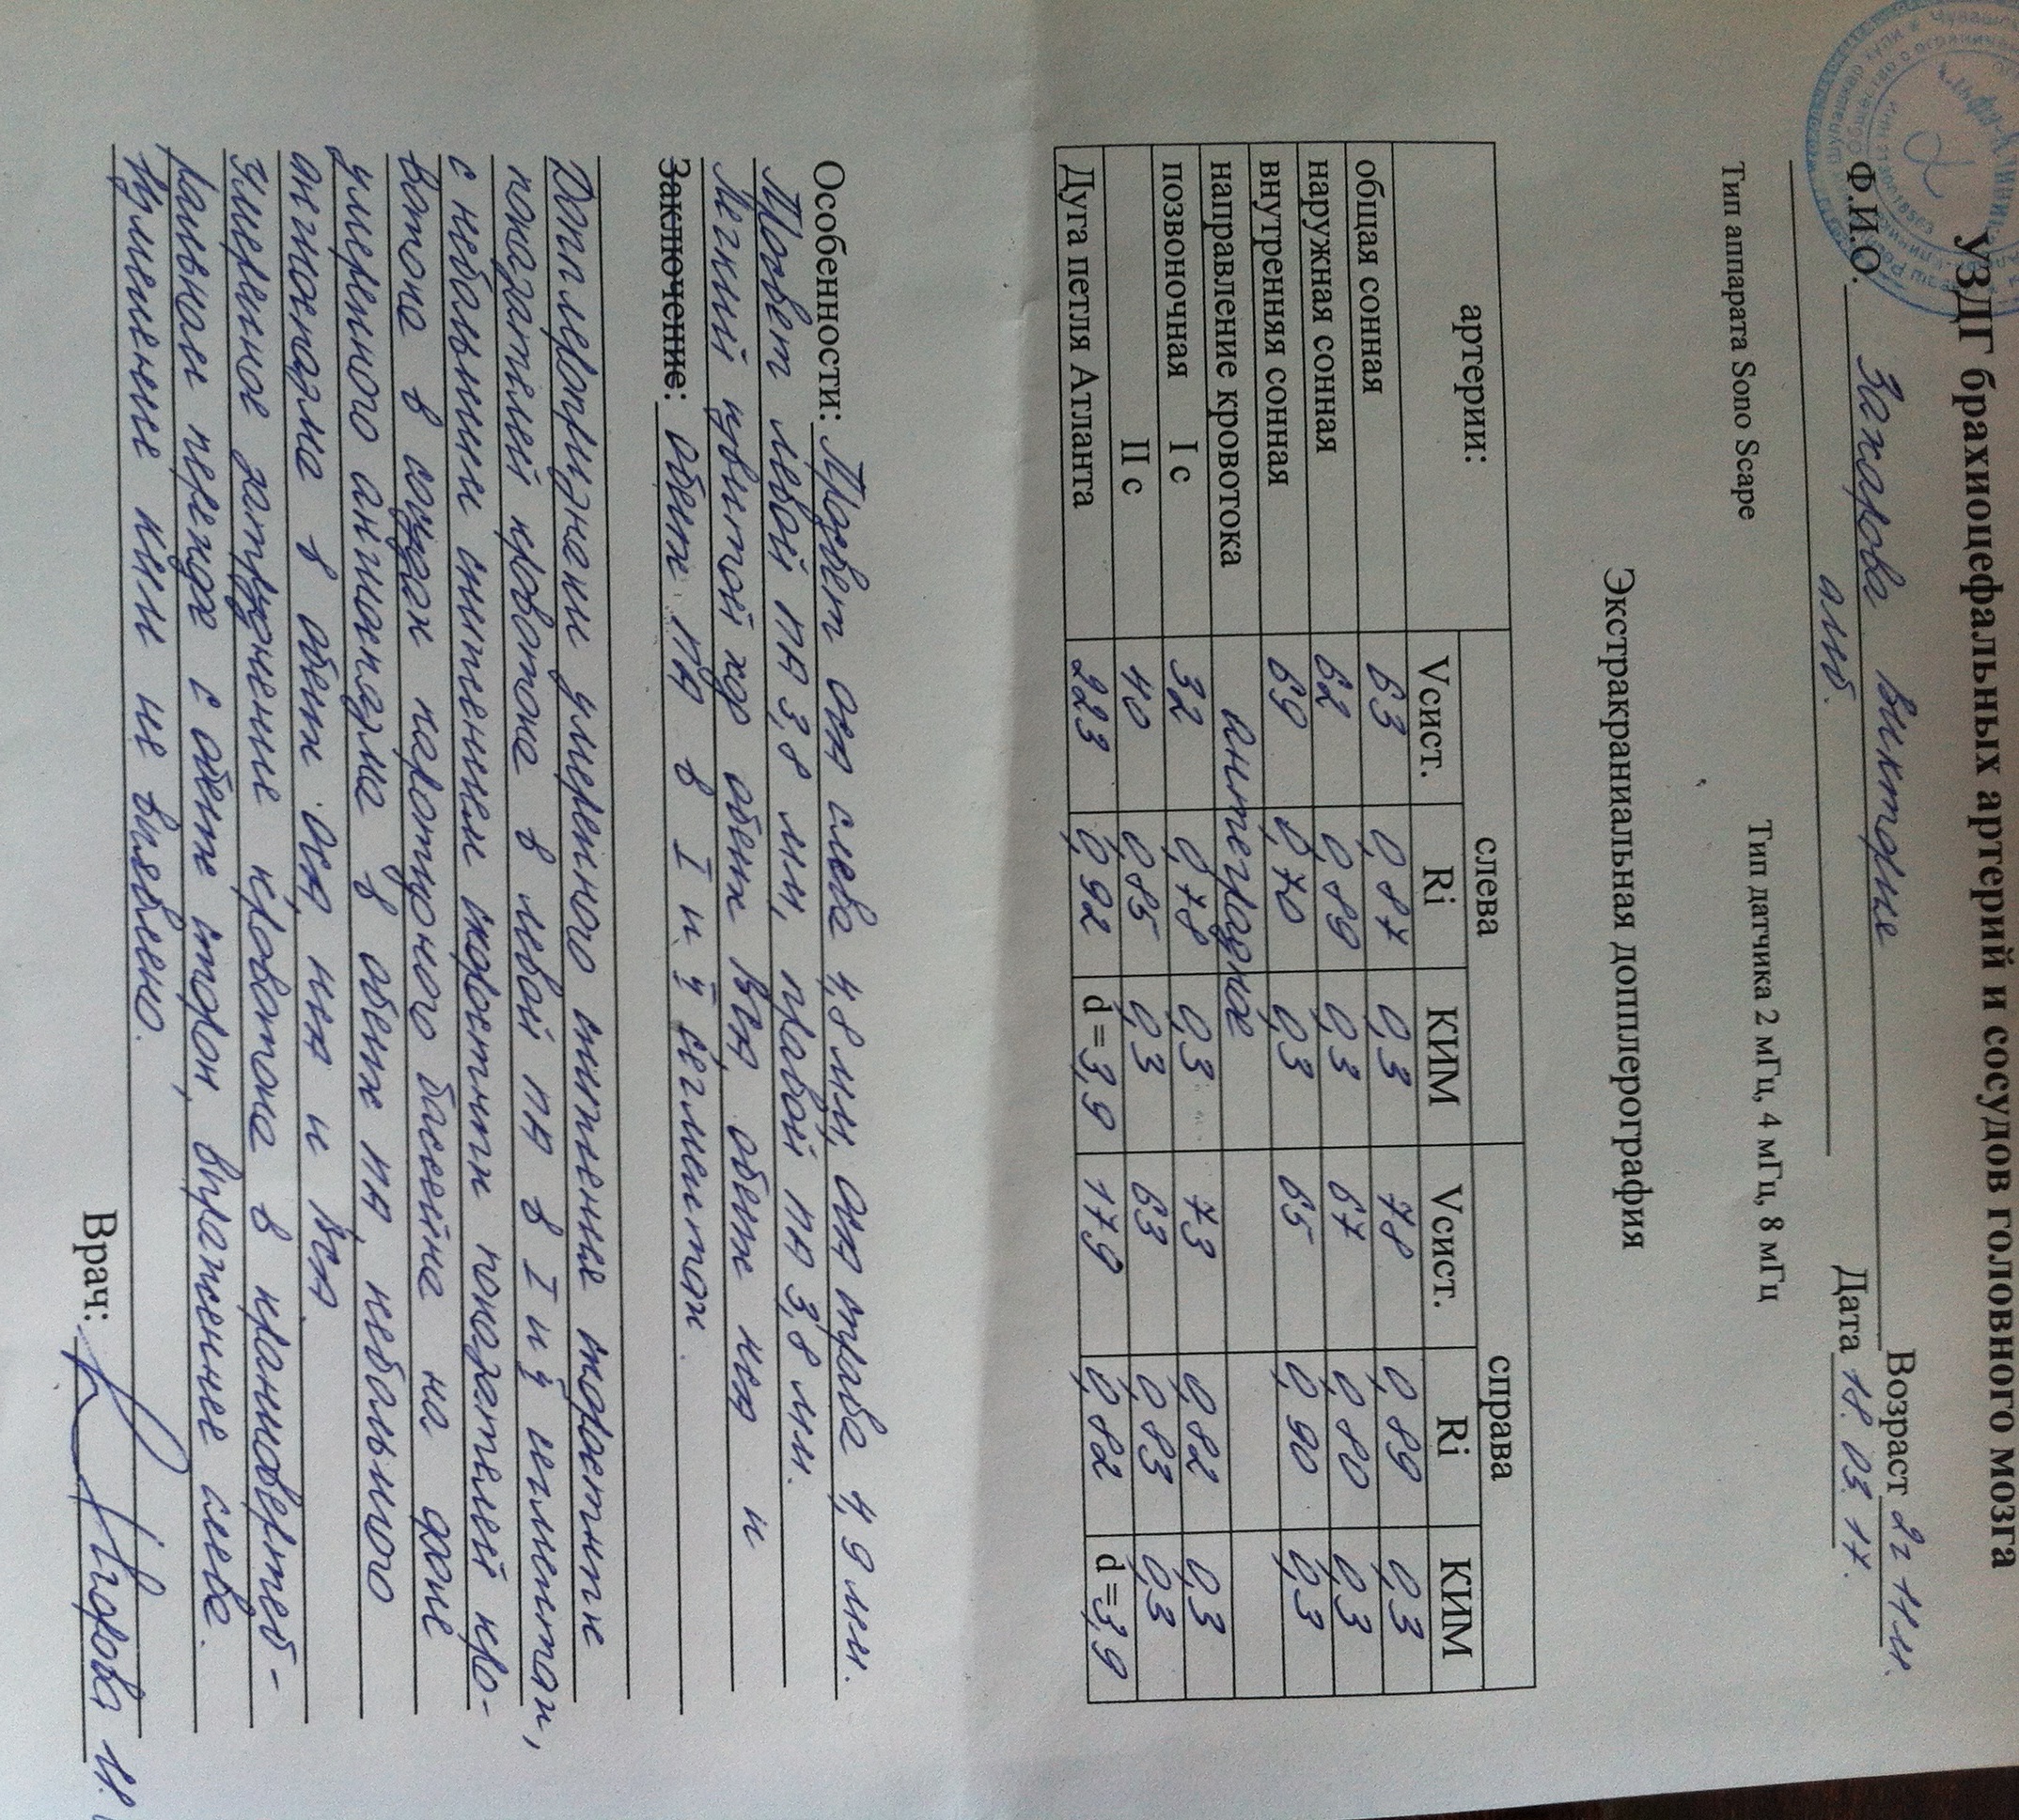 УЗДГ брахиоцефальных артерий и сосудов головного мозга
Ф.И.О. Захарова Виктория Возраст 2г 11м.
амб. Дата 18.03.17.
Тип аппарата Sono Scape Тип датчика 2 мГц, 4 мГц, 8 мГц
Экстракраниальная допплерография
артерии: слева справа
Vсист. Ri КИМ Vсист. Ri КИМ
общая сонная 63 0,87 0,3 78 0,89 0,3
наружная сонная 62 0,89 0,3 67 0,80 0,3
внутренняя сонная 69 0,70 0,3 65 0,90 0,3
направление кровотока антеградное
позвоночная I с 32 0,78 0,3 73 0,82 0,3
II с 40 0,85 0,3 63 0,83 0,3
Дуга петля Атланта 223 0,92 d=3,9 179 0,82 d=3,9
Особенности: Просвет оса слева 4,8 мм, оса справа 4,9 мм.
Просвет левой ПА 3,8 мм, правой ПА 3,8 мм.
Легкий извитой ход обеих Вса, обеих нса и
Заключение: обеих ПА в I и II сегментах.
Допплерпризнаки умеренного снижения скоростных
показателей кровотока в левой ПА в I и II сегментах,
с небольшим снижением скоростных показателей кро-
вотока в сосудах каротидного бассейна на фоне
умеренного ангиоспазма в обеих ПА, небольшого
ангиоспазма в обеих оса, нса и Вса.
Умеренное затруднение кровотока в краниовертеб-
ральном переходе с обеих сторон, выраженнее слева.
Изменение ким не выявлено.
Врач: